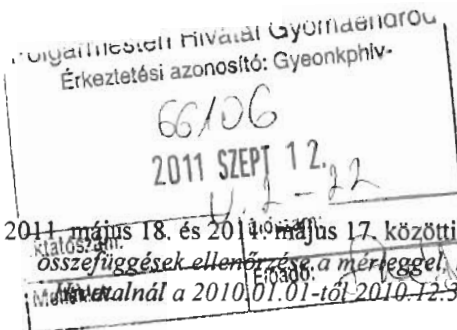 Polgármesteri Hivatal Gyomaendrőd
Érkeztetési azonosító: Gyeonkphiv-
66106
2011 SZEPT 12.
2011. május 18. és 2011. május 17. közötti
Iktatószám:
összefüggések ellenőrzése a mérleggel,
Előadó:
2010.01.01-től 2010.12.3